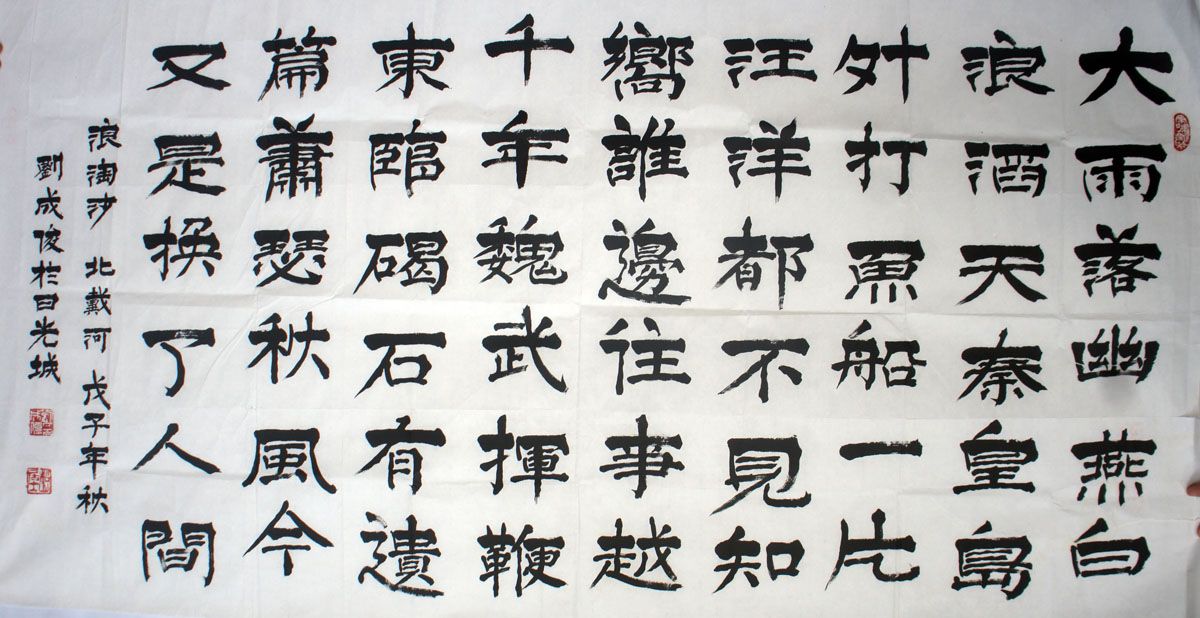 大雨落幽燕白
浪滔天秦皇島
外打魚船一片
汪洋都不見知
嚮誰邊往事越
千年魏武揮鞭
東臨碣石有遺
篇蕭瑟秋風今
又是換了人間
浪淘沙 北戴河 戊子年秋
劉成俊於日光城